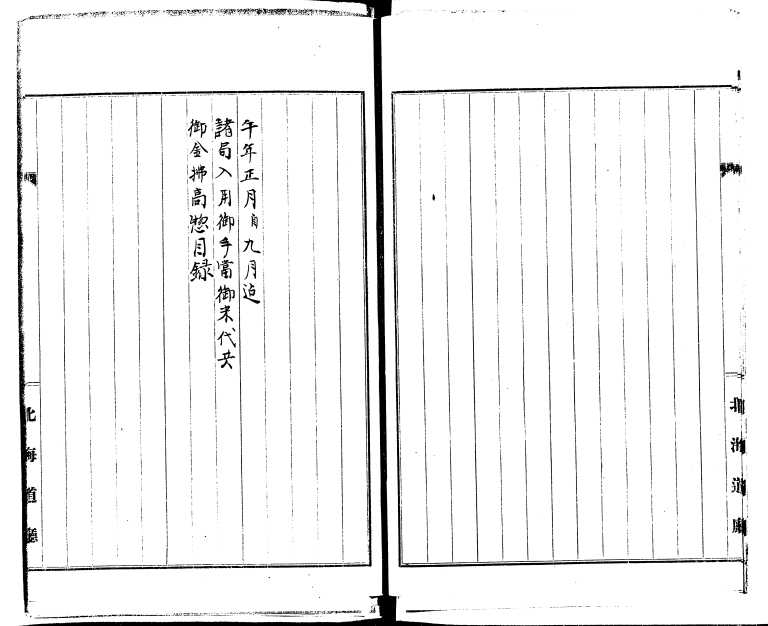 北海道廳
午年正月自九月迠
諸局入用御手當御米代共
御金拂高惣目録
北海道廳